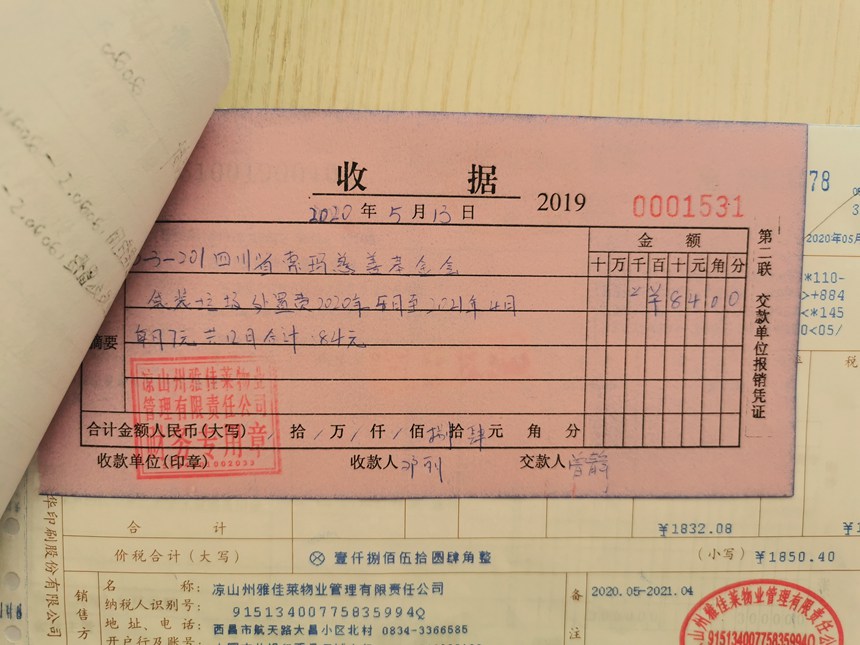 收据
2019
0001531
2020年5月13日
金额
十万千百十元角分
-3-201四川省索玛慈善基金会
袋装垃圾处置费2020年5月至2021年4月
¥8400
每月7元共12月合计:84元
摘要
凉山州雅佳莱物业
管理有限责任公司
财务专用章
合计金额人民币(大写) 拾/万/仟/佰捌拾肆元 角 分
收款单位(印章) 收款人邓列 交款人曾静
第二联 交款单位报销凭证
78
2020年05月
*110-
>+884
<*145
0<05/
税
合计 ¥1832.08
价税合计(大写) ⊗壹仟捌佰伍拾圆肆角整 (小写) ¥1850.40
华印刷股份有限公司
销售方
名称: 凉山州雅佳莱物业管理有限责任公司
纳税人识别号: 91513400775835994Q
地址、电话: 西昌市航天路大昌小区北村 0834-3366585
开户行及账号:
备注
2020.05-2021.04
凉山州雅佳莱物业管理有限责任公司
91513400775835994Q